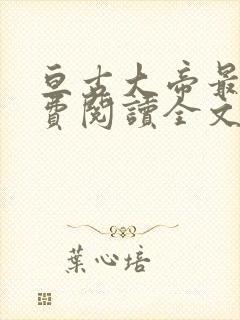 亘古大帝最
費閱讀全文
葉心培